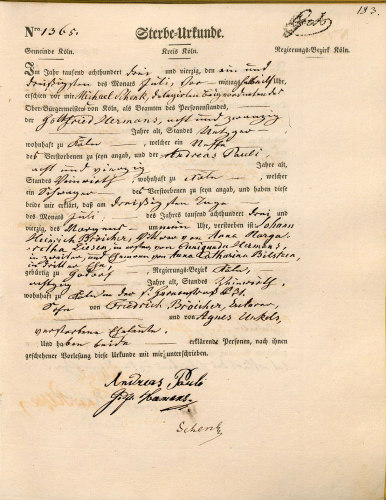 193.
Nro 1365.
Sterbe-Urkunde.
Gemeinde Köln. Kreis Köln. Regierungs-Bezirk Köln.
Im Jahr tausend achthundert drei und vierzig, den ein und
dreißigsten des Monats Juli, vor mittags Uhr,
erschien vor mir Michael Schenk, delegirten Beigeordneten des
Ober-Bürgermeisters von Köln, als Beamten des Personenstandes,
der Gottfried Hermans, acht und zwanzig
Jahre alt, Standes Metzger
wohnhaft zu Köln, welcher ein Neffe
des Verstorbenen zu seyn angab, und der Andreas Pauli,
acht und vierzig Jahre alt,
Standes wohnhaft zu Köln, welcher
ein Schwager des Verstorbenen zu seyn angab, und haben diese
beide mir erklärt, daß am dreißigsten Tage
des Monats Juli des Jahres tausend achthundert drei und
vierzig, des Morgens um neun Uhr, verstorben ist Johann
Heinrich Bröicher, Wittwer von Anna Marga-
retha Eussen in erster, von Cunigunda Hermans,
in zweiter, und von Anna Catharina
in dritter Ehe,
gebürtig zu Regierungs-Bezirk Köln,
Jahre alt, Standes
wohnhaft zu Köln in der
Sohn von Friedrich Bröicher,
und von Agnes
verstorbene Eheleute.
Und haben beide erklärende Personen, nach ihnen
geschehener Vorlesung diese Urkunde mit mir unterschrieben.
Andreas Pauli
Gottf. Hermans.
Schenk